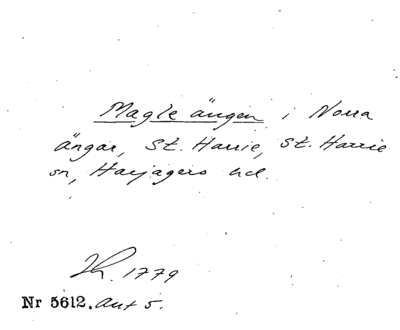 Magle ängen i Norra
ängar, St. Harrie, St. Harrie
sn, Harjagers hd.
1779
Nr 5612. Akt 5.